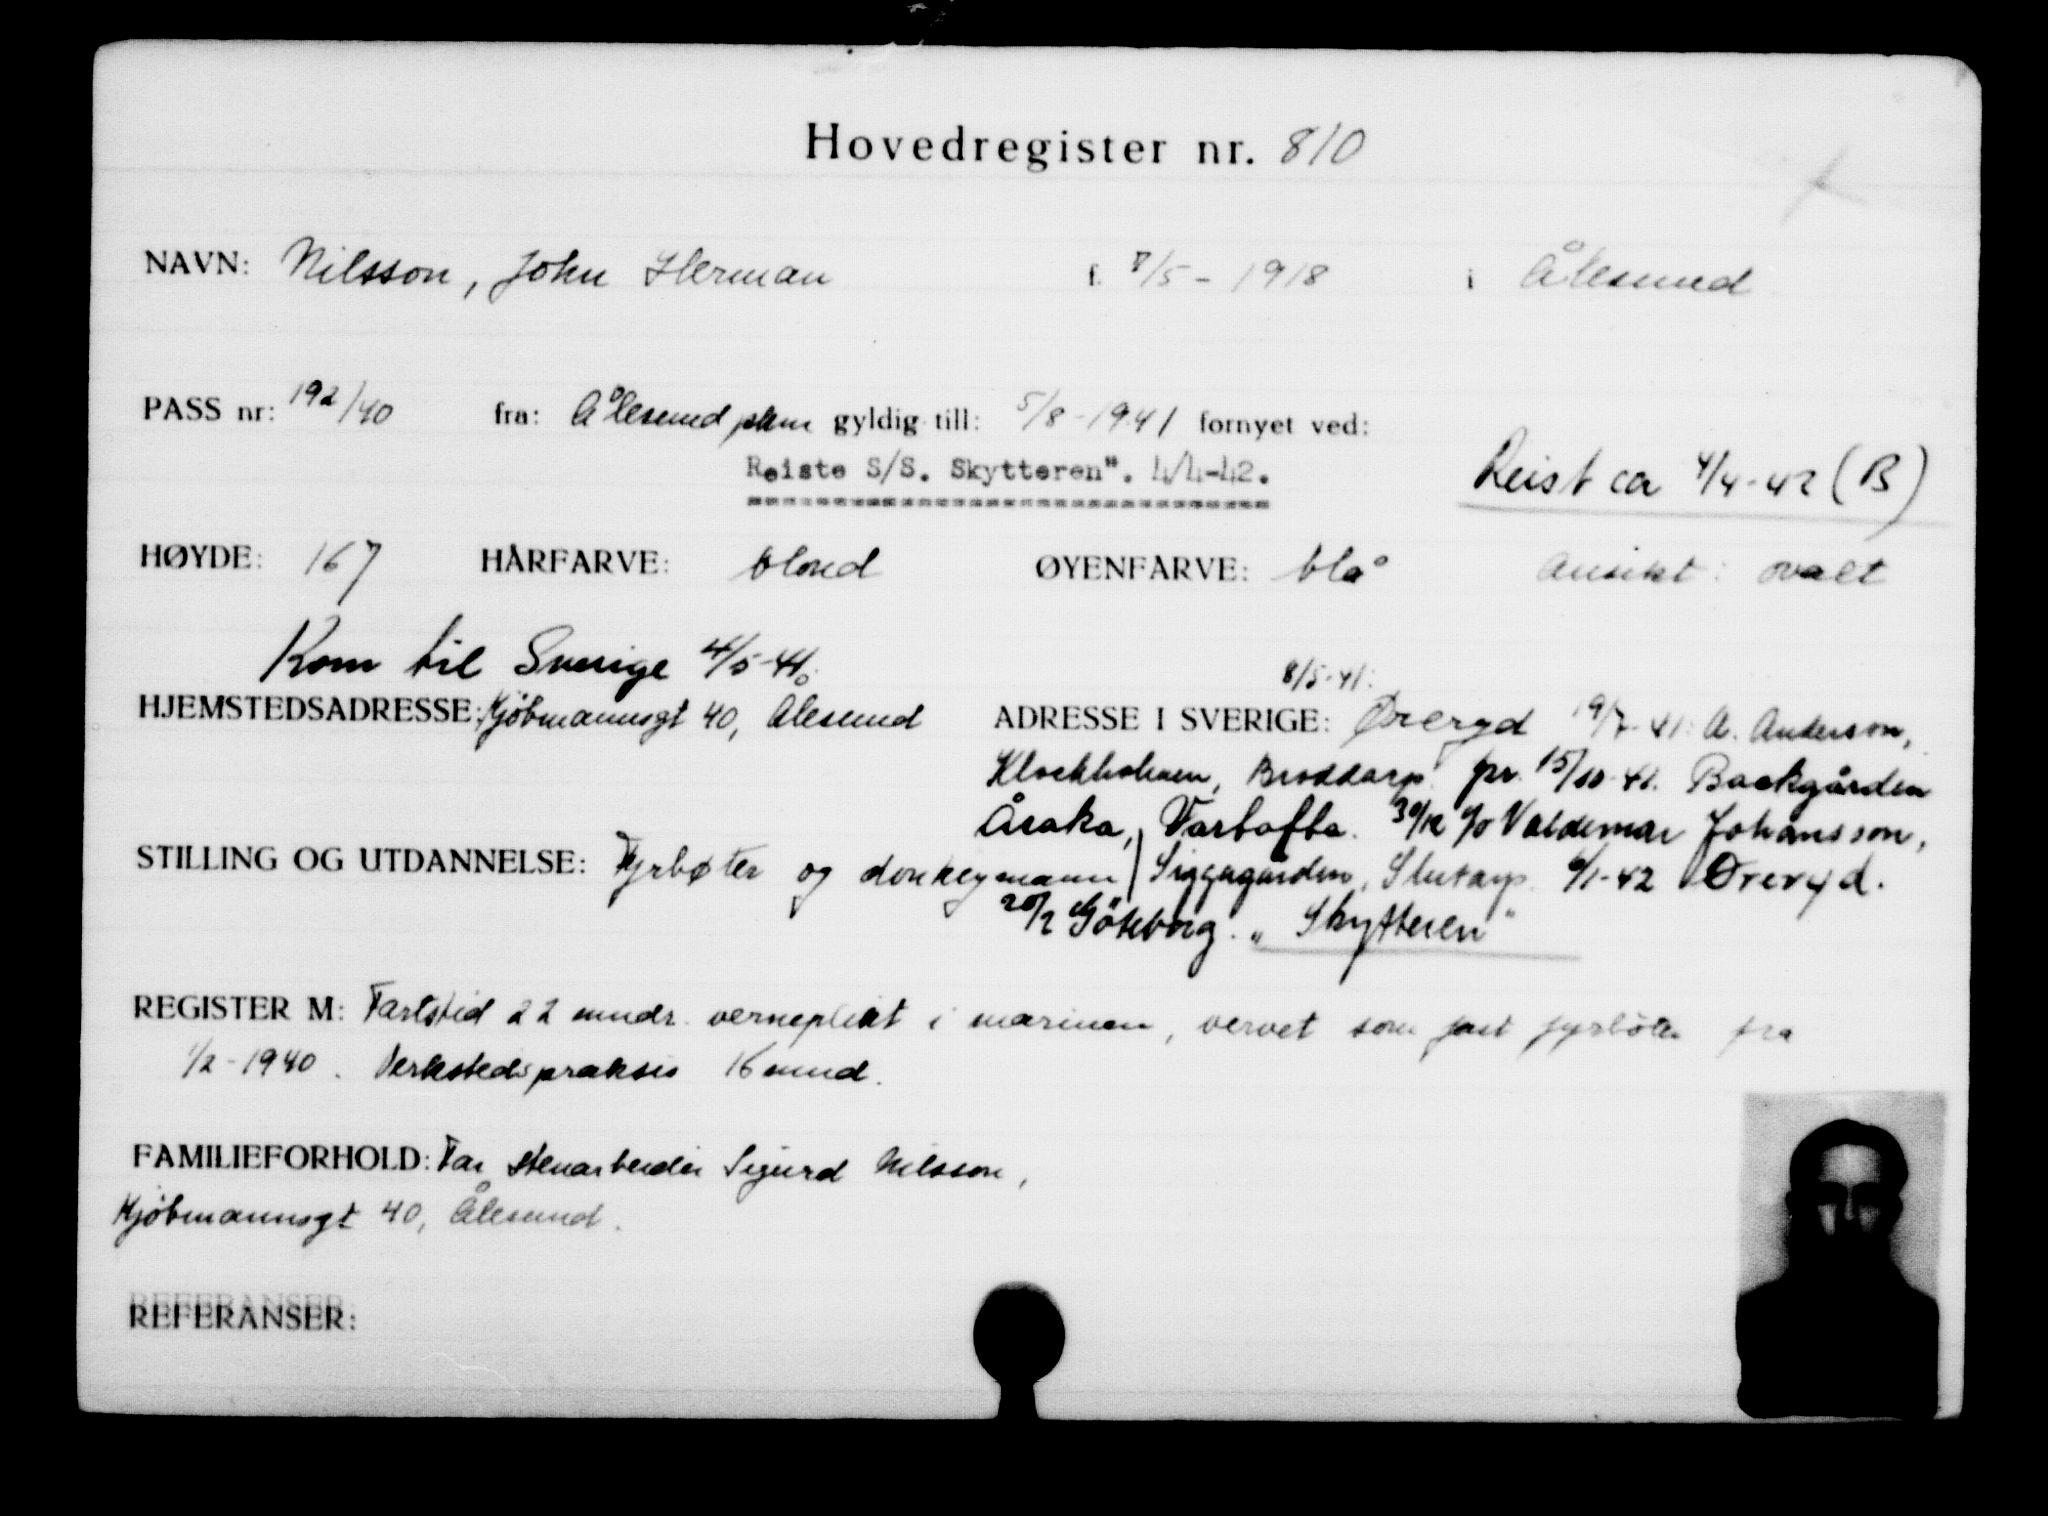 Hovedregister nr. 810
NAVN: Nilsson, John Herman f. 7/5 - 1918 i Ålesund
PASS nr: 192/40 fra: Ålesund pkm gyldig till: 5/8 - 1941 fornyet ved:
Reiste S/S. Skytteren". 4/4-42.
Reist ca 4/4-42 (B)
HØYDE: 167 HÅRFARVE: blond ØYENFARVE: blå Ansikt: ovalt
Kom til Sverige 4/5-41.
8/5-41:
HJEMSTEDSADRESSE: Kjøbmannsgt 40, Ålesund ADRESSE I SVERIGE: Øreryd 19/7-41: A. Anderson,
Klockholmen, Broddarp. pr. 15/10-41. Backgården
Åraka, Vartofta. 30/12 c/o Valdemar Johansson,
STILLING OG UTDANNELSE: Fyrbøter og donkeymann / Siggagården, Slutarp. 6/1-42 Øreryd.
20/2 Göteborg. "Skytteren"
REGISTER M: Fartstid 22 mndr. verneplikt i marinen, vervet som fast fyrbøter fra
1/2 - 1940. Verkstedspraksis 16 mnd.
FAMILIEFORHOLD: Far stenarbeider Sigurd Nilsson,
Kjøbmannsgt 40, Ålesund.
REFERANSER: